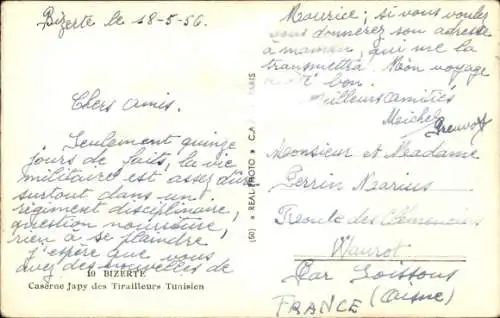 Bizerte le 18-5-56.
Chers amis.
Seulement quinze
jours de faits, la vie
militaire est assez dure
surtout dans un
régiment disciplinaire,
question nourriture,
rien à se plaindre
j'espère que vous
avez des nouvelles de
10 BIZERTE
Caserne Japy des Tirailleurs Tunisien
(60) ★ REAL-PHOTO ★ C.A. PARIS
Maurice ; si vous voulez
vous donnerez son adresse
à maman, qui me la
transmettra. Mon voyage
a été bon.
Meilleurs amitiés
Michel
Monsieur et Madame
Perrin Marius
Route des
Par Soissons
(Aisne)
FRANCE